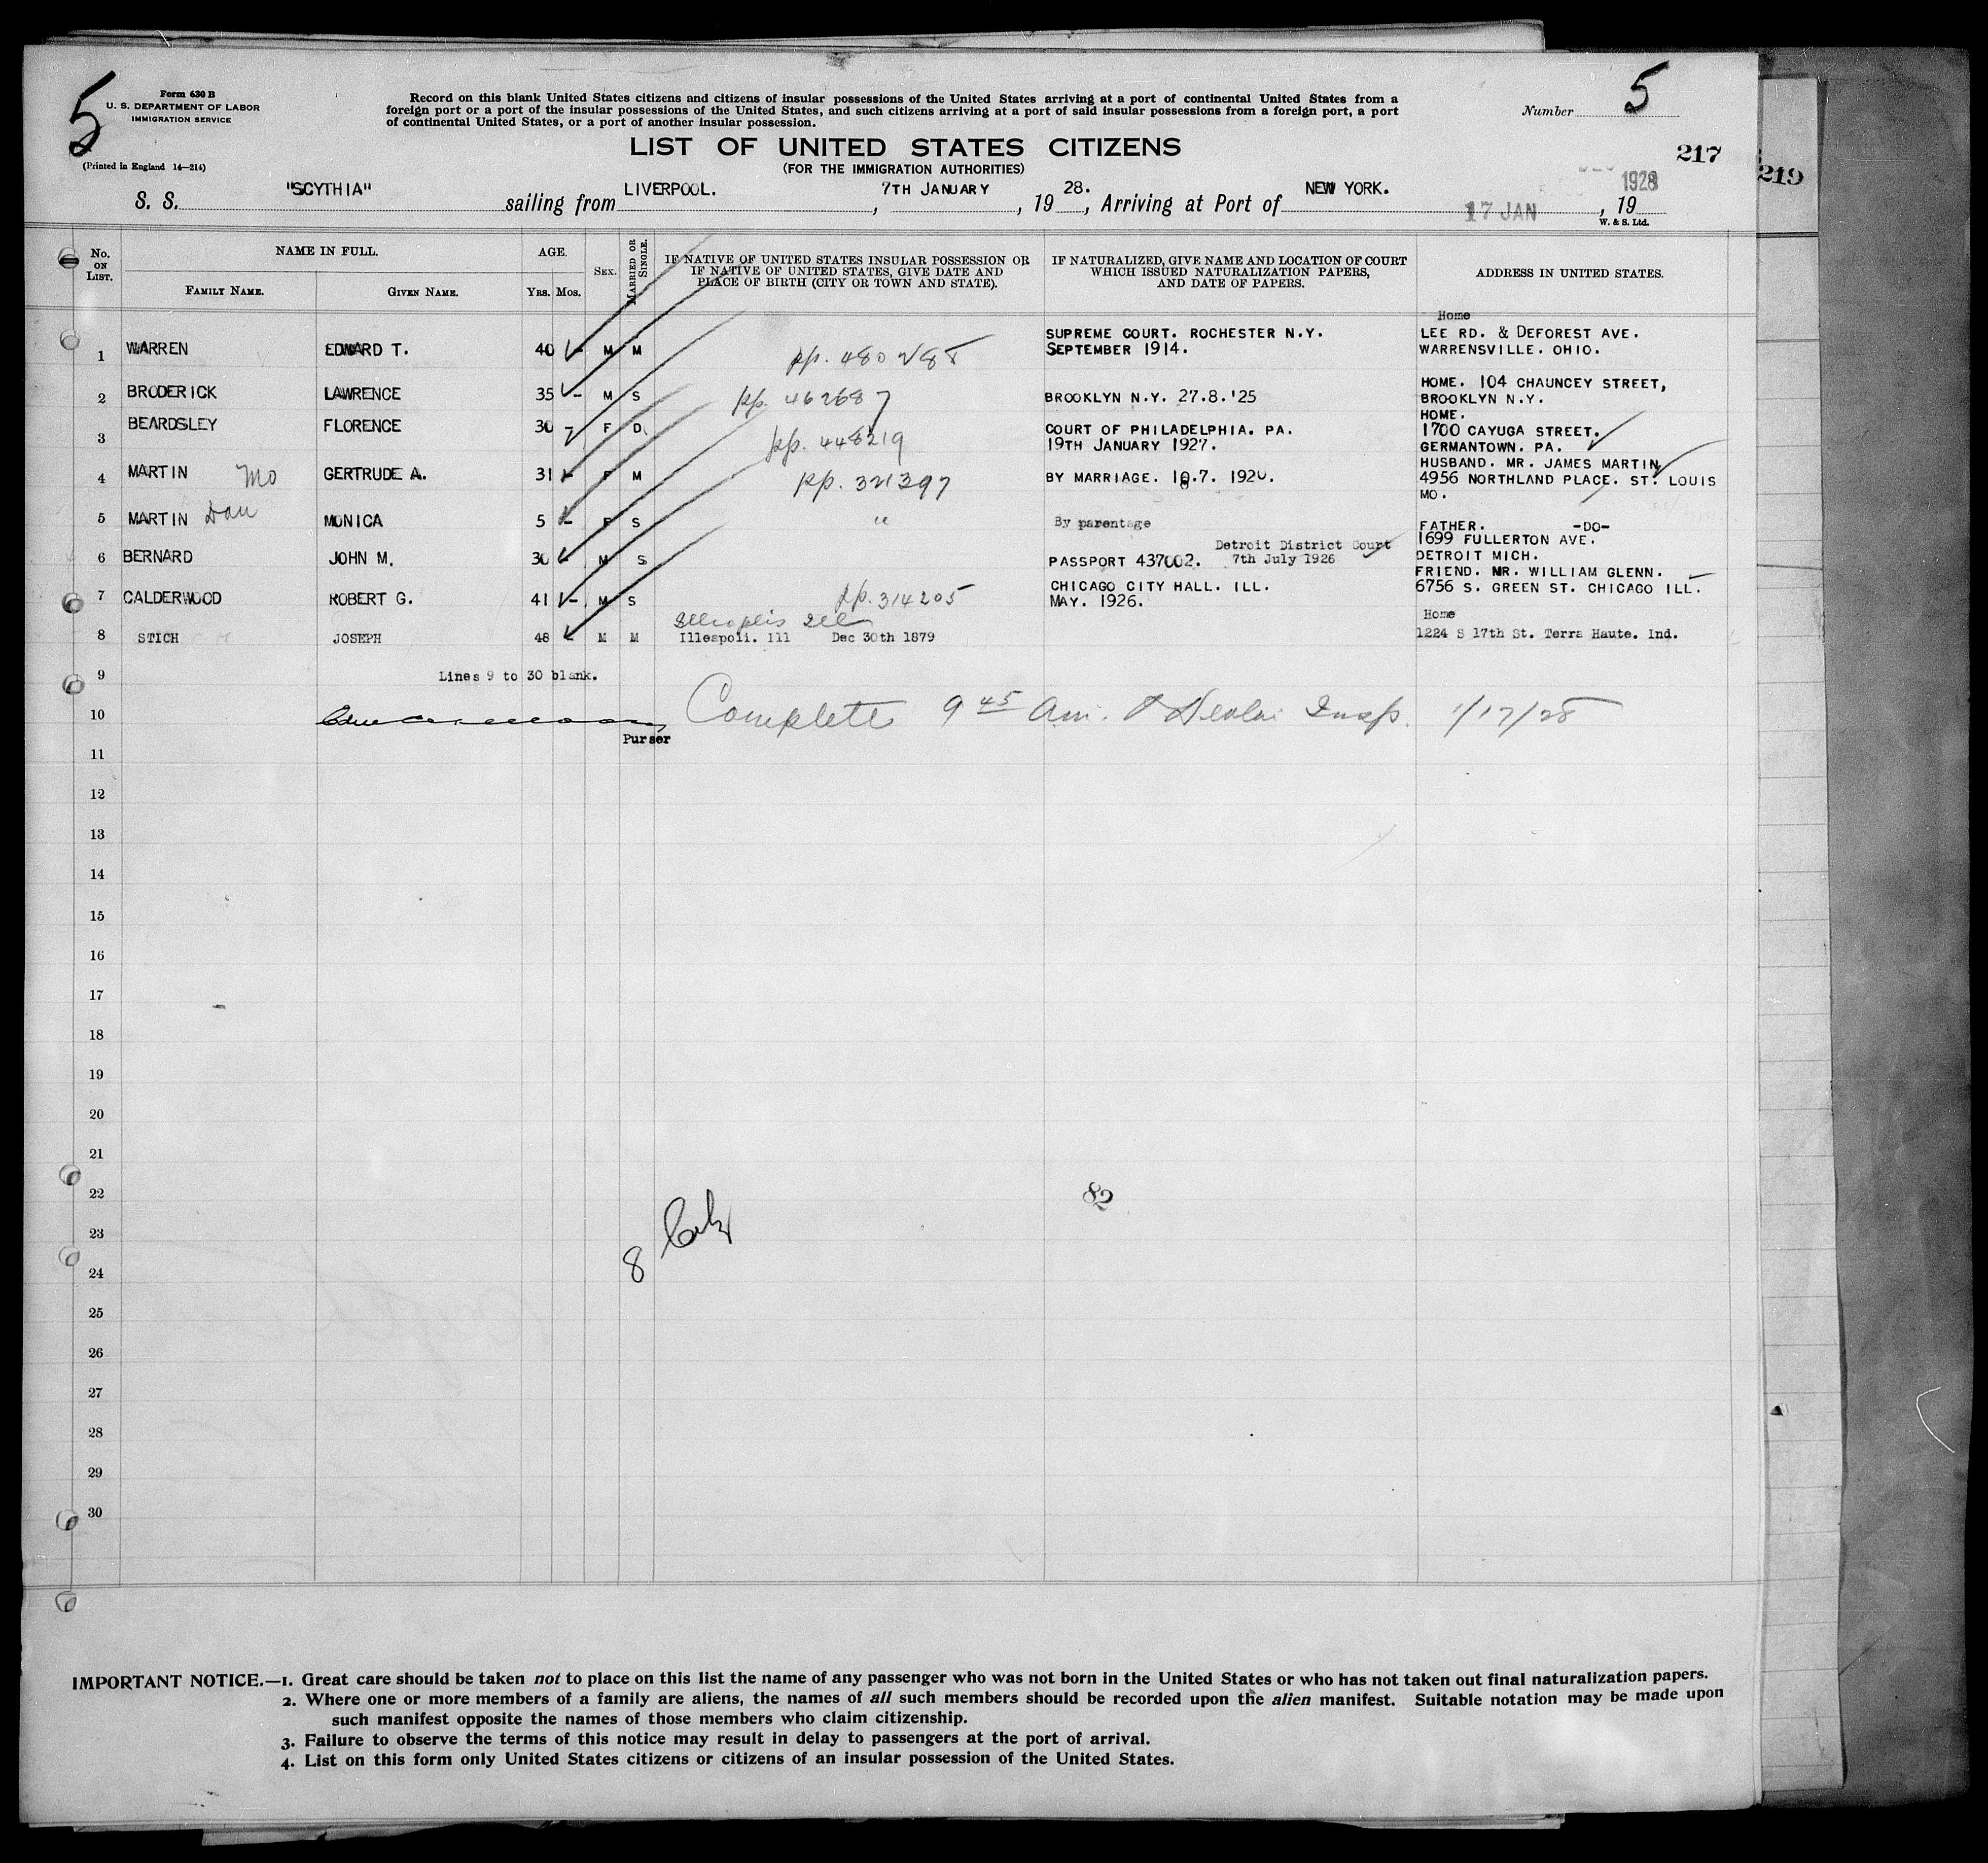 5
Form 630 B
U. S. DEPARTMENT OF LABOR
IMMIGRATION SERVICE
(Printed in England 14—214)
Record on this blank United States citizens and citizens of insular possessions of the United States arriving at a port of continental United States from a
foreign port or a port of the insular possessions of the United States, and such citizens arriving at a port of said insular possessions from a foreign port, a port
of continental United States, or a port of another insular possession.
Number 5
LIST OF UNITED STATES CITIZENS
(FOR THE IMMIGRATION AUTHORITIES)
217
219
S. S. "SCYTHIA" sailing from LIVERPOOL. , 7TH JANUARY , 19 28. , Arriving at Port of NEW YORK. 17 JAN 1928 , 19
W. & S. Ltd.
No. ON LIST.
NAME IN FULL.
FAMILY NAME.
GIVEN NAME.
AGE.
YRS. MOS.
SEX.
MARRIED OR SINGLE.
IF NATIVE OF UNITED STATES INSULAR POSSESSION OR
IF NATIVE OF UNITED STATES, GIVE DATE AND
PLACE OF BIRTH (CITY OR TOWN AND STATE).
IF NATURALIZED, GIVE NAME AND LOCATION OF COURT
WHICH ISSUED NATURALIZATION PAPERS,
AND DATE OF PAPERS.
ADDRESS IN UNITED STATES.
1 WARREN EDWARD T. 40 - M M pp. 480288 SUPREME COURT. ROCHESTER N.Y.
SEPTEMBER 1914.
Home
LEE RD. & DEFOREST AVE.
WARRENSVILLE. OHIO.
2 BRODERICK LAWRENCE 35 - M S pp. 462687 BROOKLYN N.Y. 27.8.'25
HOME. 104 CHAUNCEY STREET,
BROOKLYN N.Y.
3 BEARDSLEY FLORENCE 30 - F D pp. 448219 COURT OF PHILADELPHIA. PA.
19TH JANUARY 1927.
HOME.
1700 CAYUGA STREET.
GERMANTOWN. PA.
4 MARTIN Mo GERTRUDE A. 31 - F M pp. 321397 BY MARRIAGE. 10.7. 1920.
HUSBAND. MR. JAMES MARTIN
4956 NORTHLAND PLACE. ST. LOUIS
MO.
5 MARTIN Dau MONICA 5 - F S " By parentage
FATHER. -DO-
6 BERNARD JOHN M. 30 - M S PASSPORT 437002. Detroit District Court
7th July 1926
1699 FULLERTON AVE.
DETROIT MICH.
7 CALDERWOOD ROBERT G. 41 - M S pp. 314205 CHICAGO CITY HALL. ILL.
MAY. 1926.
FRIEND. MR. WILLIAM GLENN.
6756 S. GREEN ST. CHICAGO ILL.
Illiopolis Ill
8 STICH JOSEPH 48 - M M Illeapoli. Ill Dec 30th 1879
Home
1224 S 17th St. Terra Haute. Ind.
9 Lines 9 to 30 blank.
10 Complete 9 45 Am. Insp. 1/17/28
Purser
11
12
13
14
15
16
17
18
19
20
21
22
82
23
8
24
25
26
27
28
29
30
IMPORTANT NOTICE.—1. Great care should be taken not to place on this list the name of any passenger who was not born in the United States or who has not taken out final naturalization papers.
2. Where one or more members of a family are aliens, the names of all such members should be recorded upon the alien manifest. Suitable notation may be made upon
such manifest opposite the names of those members who claim citizenship.
3. Failure to observe the terms of this notice may result in delay to passengers at the port of arrival.
4. List on this form only United States citizens or citizens of an insular possession of the United States.